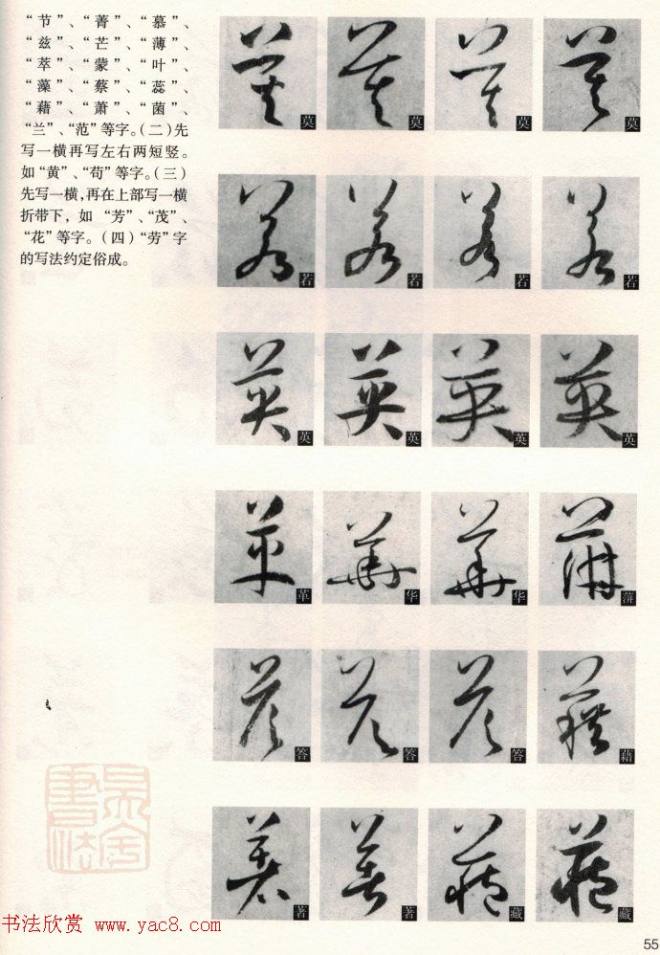 “节”、“菁”、“慕”、
“兹”、“芒”、“薄”、
“萃”、“蒙”、“叶”、
“藻”、“蔡”、“蕊”、
“藉”、“萧”、“菌”、
“兰”、“范”等字。(二)先
写一横再写左右两短竖。
如“黄”、“荀”等字。(三)
先写一横，再在上部写一横
折带下，如 “芳”、“茂”、
“花”等字。(四)“劳”字
的写法约定俗成。
莫 莫 莫 莫
若 若 若 若
英 英 英 英
革 华 华
答 答 答 藉
著 著 藏 藏
书法欣赏 www.yac8.com
55